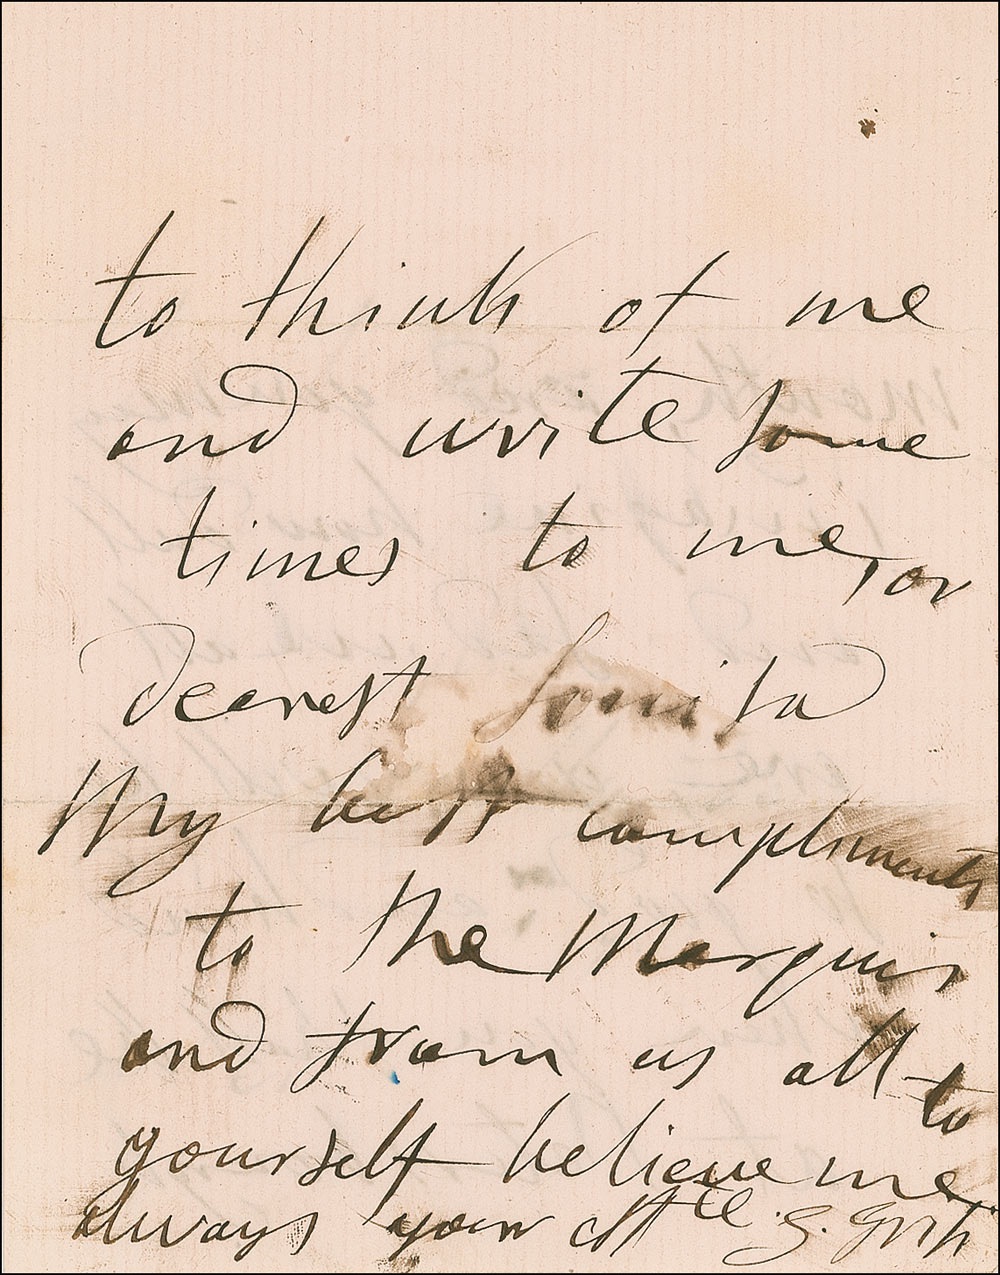 to think of me
and write some
times to me, or
dearest Louisa
My best compliments
to the Marquis
and from us all to
yourself believe me
always your affte G. Grisi